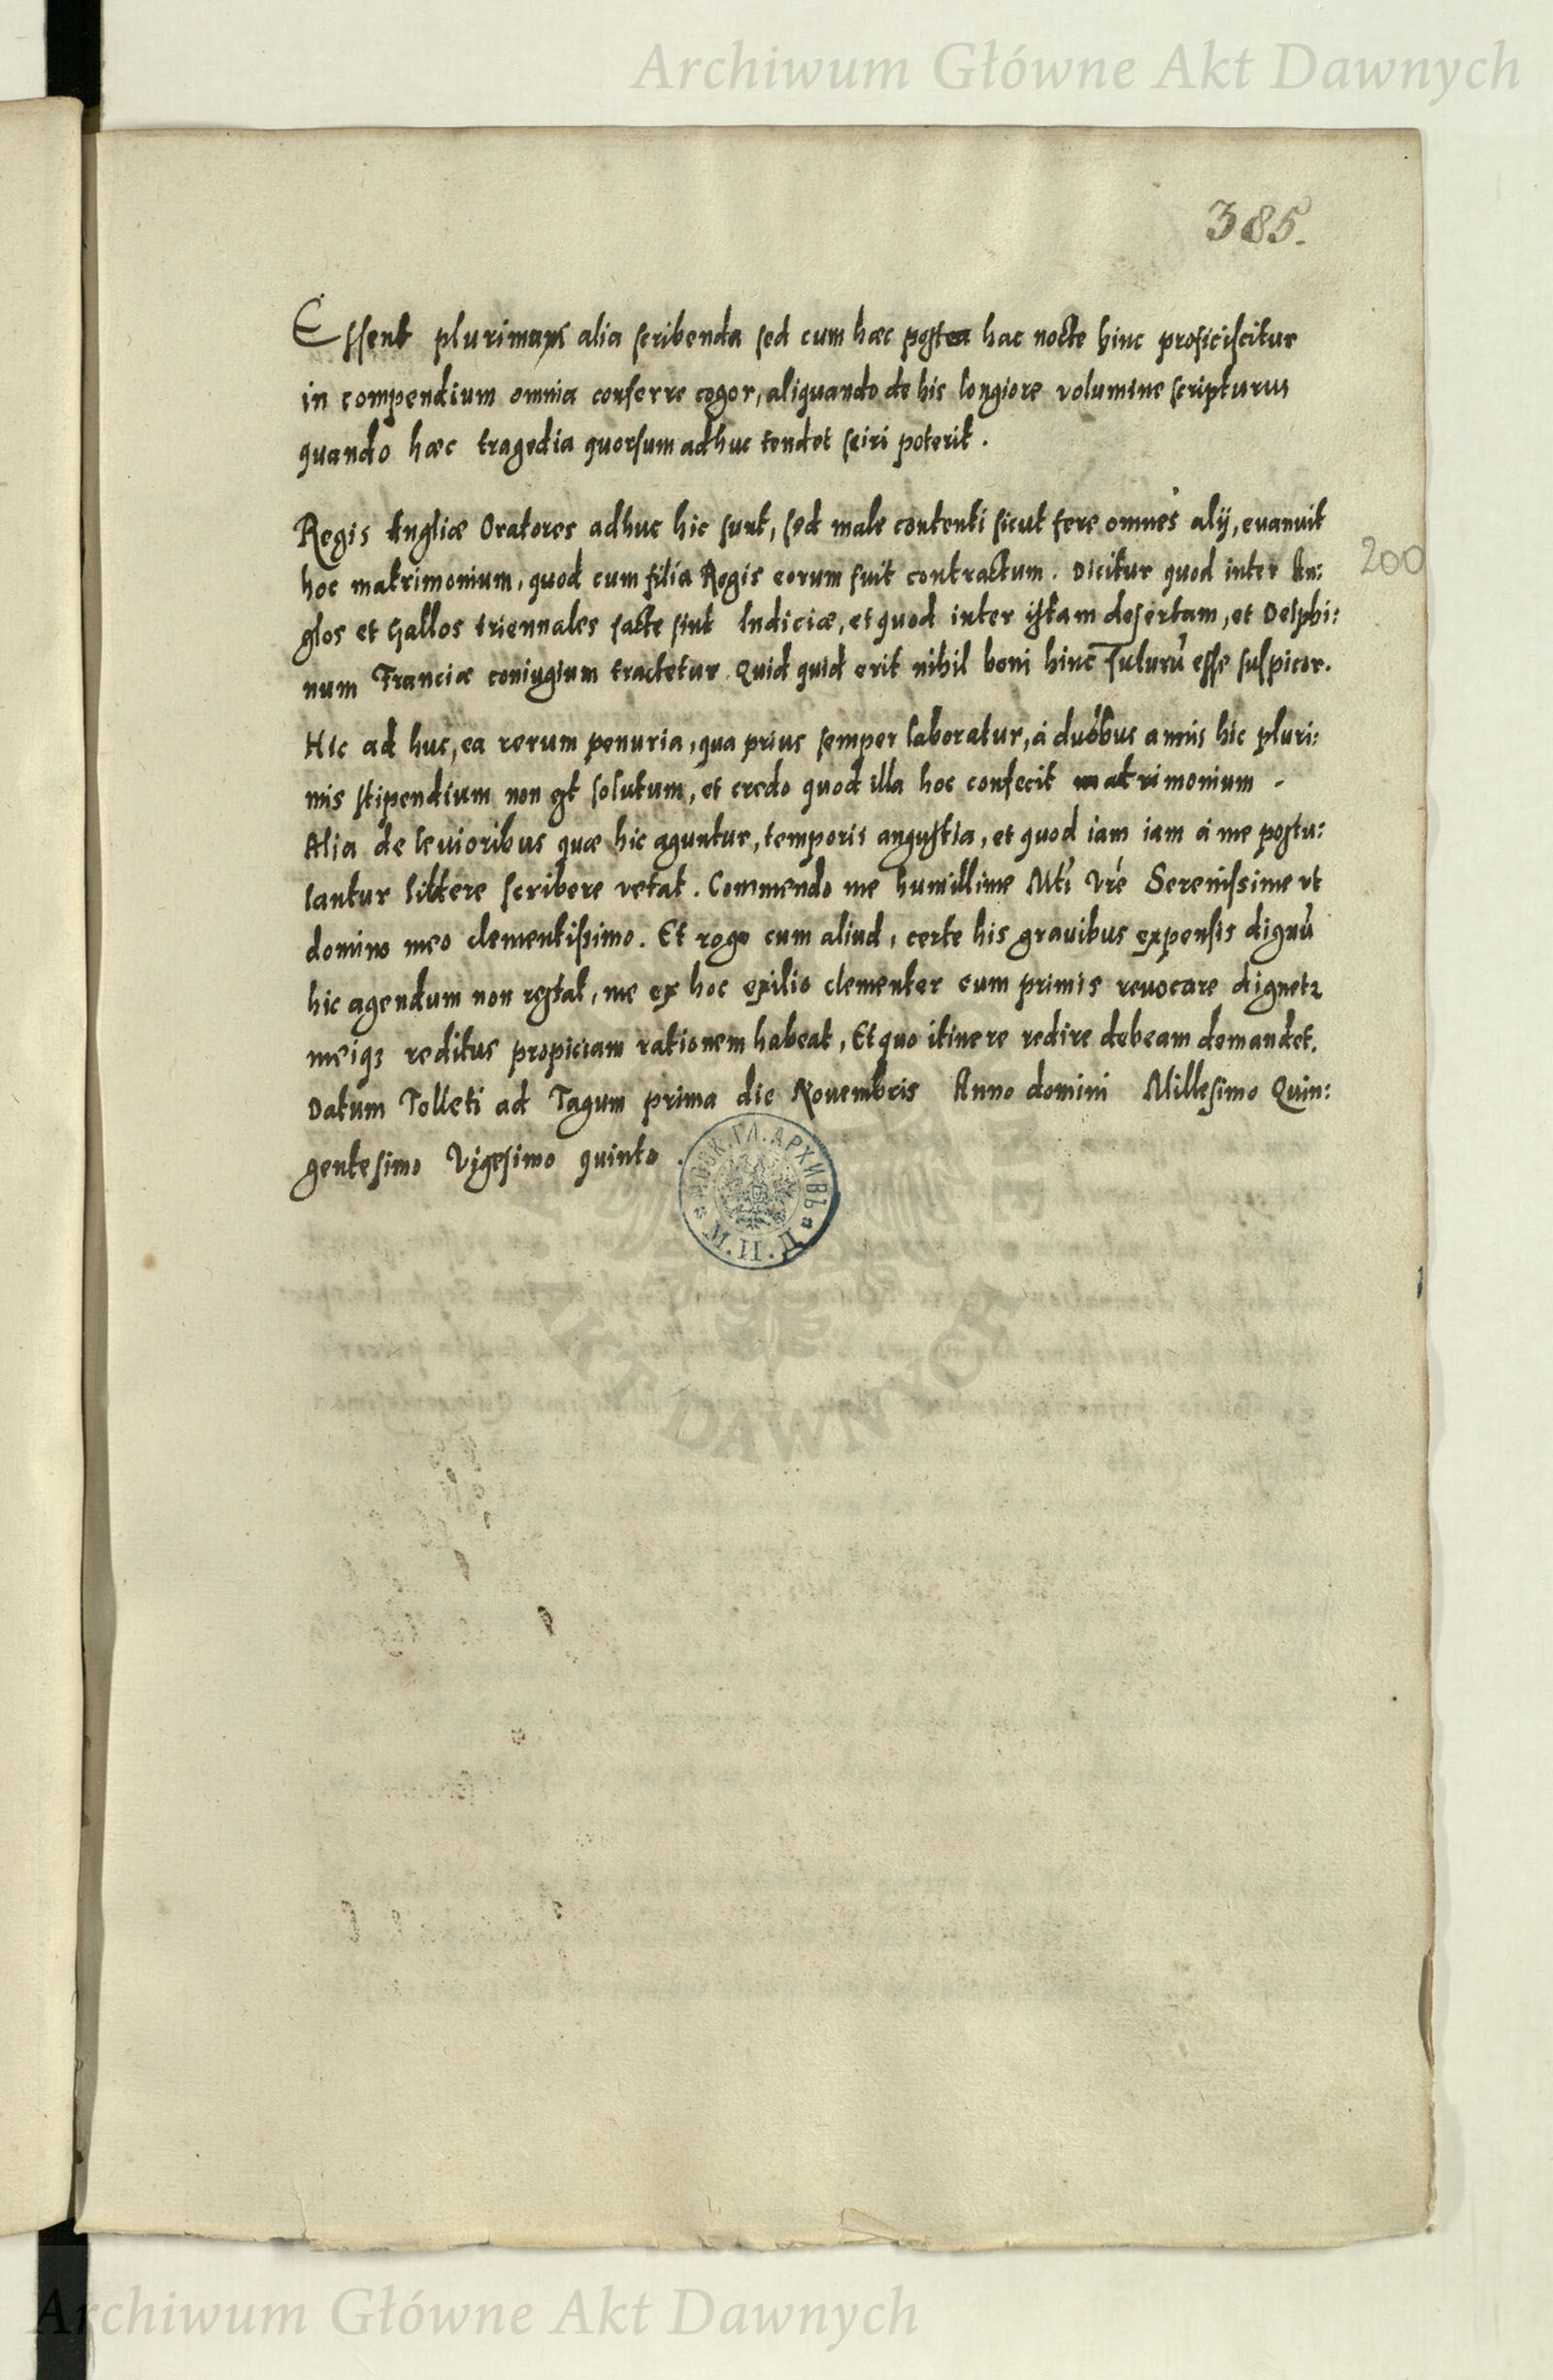 Archiwum Główne Akt Dawnych
385.
Essent plurima alia scribenda sed cum hæc posta hac nocte hinc proficiscitur
in compendium omnia conferre cogor, aliquando de his longiore volumine scripturus
quando hæc tragedia quorsum adhuc tendet sciri poterit.
Regis Angliæ Oratores adhuc hic sunt, sed male contenti sicut fere omnes alij, euanuit
hoc matrimonium, quod cum filia Regis eorum fuit contractum. Dicitur quod inter An:
200
glos et Gallos triennales facte sint Induciæ, et quod inter istam desertam, et Delphi:
num Franciæ coniugium tractetur Quid quid erit nihil boni hinc futurū esse suspicor.
Hic ad huc, ea rerum penuria, qua prius semper laboratur, à duobus annis hic pluri:
mis stipendium non est solutum, et credo quod illa hoc confecit matrimonium.
Alia de leuioribus quæ hic aguntur, temporis angustia, et quod iam iam à me postu:
lantur littere scribere vetat. Commendo me humillime Mti Vrē Serenissime vt
domino meo clementissimo. Et rogo cum aliud, certe his grauibus expensis dignū
hic agendum non restat, me ex hoc exilio clementer cum primis reuocare dignetr
meiqz reditus propiciam rationem habeat, Et quo itinere redire debeam demandet.
Datum Tolleti ad Tagum prima die Nouembris Anno domini Millesimo Quin:
gentesimo Vigesimo quinto.
МОСК.ГЛ.АРХИВЪ
М.И.Д.
AKT DAWNYCH
Archiwum Główne Akt Dawnych